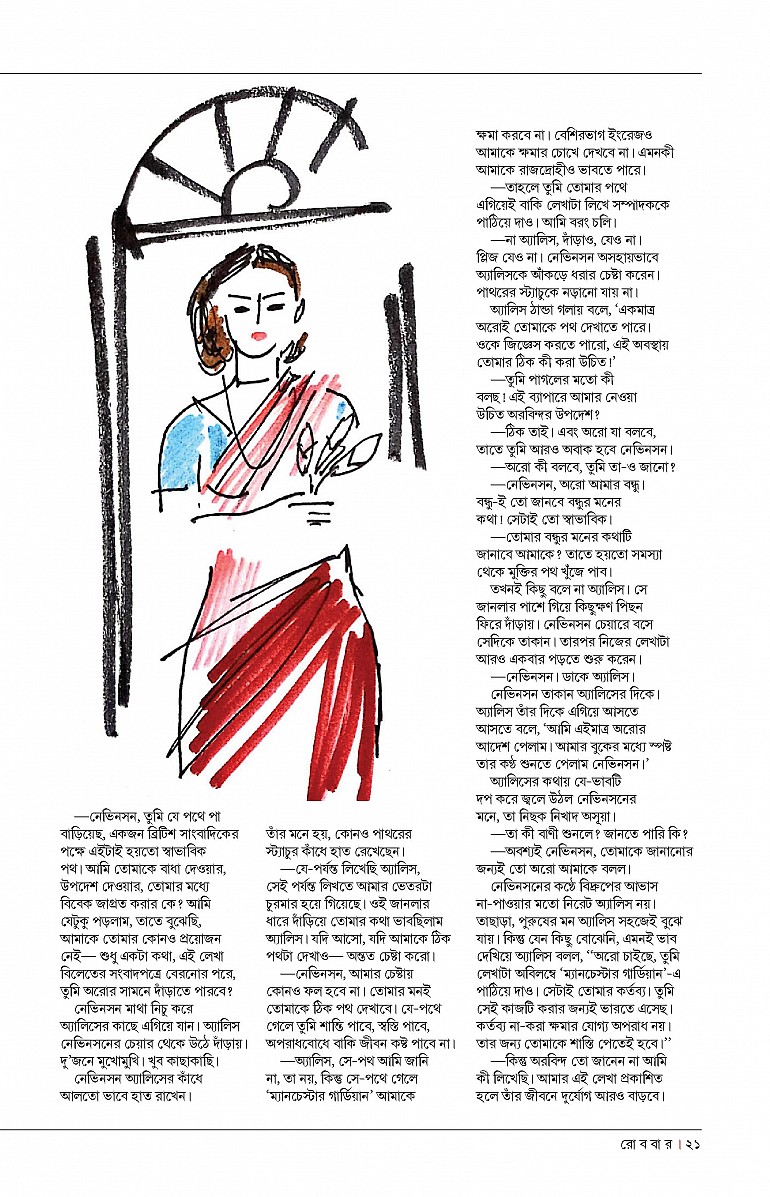 —নেভিনসন, তুমি যে পথে পা
বাড়িয়েছ, একজন ব্রিটিশ সাংবাদিকের
পক্ষে এইটাই হয়তো স্বাভাবিক
পথ। আমি তোমাকে বাধা দেওয়ার,
উপদেশ দেওয়ার, তোমার মধ্যে
বিবেক জাগ্রত করার কে? আমি
যেটুকু পড়লাম, তাতে বুঝেছি,
আমাকে তোমার কোনও প্রয়োজন
নেই— শুধু একটা কথা, এই লেখা
বিলেতের সংবাদপত্রে বেরনোর পরে,
তুমি অরোর সামনে দাঁড়াতে পারবে?
নেভিনসন মাথা নিচু করে
অ্যালিসের কাছে এগিয়ে যান। অ্যালিস
নেভিনসনের চেয়ার থেকে উঠে দাঁড়ায়।
দু'জনে মুখোমুখি। খুব কাছাকাছি।
নেভিনসন অ্যালিসের কাঁধে
আলতো ভাবে হাত রাখেন।
তাঁর মনে হয়, কোনও পাথরের
স্ট্যাচুর কাঁধে হাত রেখেছেন।
—যে-পর্যন্ত লিখেছি অ্যালিস,
সেই পর্যন্ত লিখতে আমার ভেতরটা
চুরমার হয়ে গিয়েছে। ওই জানলার
ধারে দাঁড়িয়ে তোমার কথা ভাবছিলাম
অ্যালিস। যদি আসো, যদি আমাকে ঠিক
পথটা দেখাও— অন্তত চেষ্টা করো।
—নেভিনসন, আমার চেষ্টায়
কোনও ফল হবে না। তোমার মনই
তোমাকে ঠিক পথ দেখাবে। যে-পথে
গেলে তুমি শান্তি পাবে, স্বস্তি পাবে,
অপরাধবোধে বাকি জীবন কষ্ট পাবে না।
—অ্যালিস, সে-পথ আমি জানি
না, তা নয়, কিন্তু সে-পথে গেলে
'ম্যানচেস্টার গার্ডিয়ান' আমাকে
ক্ষমা করবে না। বেশিরভাগ ইংরেজও
আমাকে ক্ষমার চোখে দেখবে না। এমনকী
আমাকে রাজদ্রোহীও ভাবতে পারে।
—তাহলে তুমি তোমার পথে
এগিয়েই বাকি লেখাটা লিখে সম্পাদককে
পাঠিয়ে দাও। আমি বরং চলি।
—না অ্যালিস, দাঁড়াও, যেও না।
প্লিজ যেও না। নেভিনসন অসহায়ভাবে
অ্যালিসকে আঁকড়ে ধরার চেষ্টা করেন।
পাথরের স্ট্যাচুকে নড়ানো যায় না।
অ্যালিস ঠান্ডা গলায় বলে, 'একমাত্র
অরোই তোমাকে পথ দেখাতে পারে।
ওকে জিজ্ঞেস করতে পারো, এই অবস্থায়
তোমার ঠিক কী করা উচিত!'
—তুমি পাগলের মতো কী
বলছ! এই ব্যাপারে আমার নেওয়া
উচিত অরবিন্দর উপদেশ?
—ঠিক তাই। এবং অরো যা বলবে,
তাতে তুমি আরও অবাক হবে নেভিনসন।
—অরো কী বলবে, তুমি তা-ও জানো?
—নেভিনসন, অরো আমার বন্ধু।
বন্ধু-ই তো জানবে বন্ধুর মনের
কথা! সেটাই তো স্বাভাবিক।
—তোমার বন্ধুর মনের কথাটি
জানাবে আমাকে? তাতে হয়তো সমস্যা
থেকে মুক্তির পথ খুঁজে পাব।
তখনই কিছু বলে না অ্যালিস। সে
জানলার পাশে গিয়ে কিছুক্ষণ পিছন
ফিরে দাঁড়ায়। নেভিনসন চেয়ারে বসে
সেদিকে তাকান। তারপর নিজের লেখাটা
আরও একবার পড়তে শুরু করেন।
—নেভিনসন। ডাকে অ্যালিস।
নেভিনসন তাকান অ্যালিসের দিকে।
অ্যালিস তাঁর দিকে এগিয়ে আসতে
আসতে বলে, 'আমি এইমাত্র অরোর
আদেশ পেলাম। আমার বুকের মধ্যে স্পষ্ট
তার কণ্ঠ শুনতে পেলাম নেভিনসন।'
অ্যালিসের কথায় যে-ভাবটি
দপ করে জ্বলে উঠল নেভিনসনের
মনে, তা নিছক নিখাদ অসূয়া।
—তা কী বাণী শুনলে? জানতে পারি কি?
—অবশ্যই নেভিনসন, তোমাকে জানানোর
জন্যই তো অরো আমাকে বলল।
নেভিনসনের কণ্ঠে বিদ্রুপের আভাস
না-পাওয়ার মতো নিরেট অ্যালিস নয়।
তাছাড়া, পুরুষের মন অ্যালিস সহজেই বুঝে
যায়। কিন্তু যেন কিছু বোঝেনি, এমনই ভাব
দেখিয়ে অ্যালিস বলল, ''অরো চাইছে, তুমি
লেখাটা অবিলম্বে 'ম্যানচেস্টার গার্ডিয়ান'-এ
পাঠিয়ে দাও। সেটাই তোমার কর্তব্য। তুমি
সেই কাজটি করার জন্যই ভারতে এসেছ।
কর্তব্য না-করা ক্ষমার যোগ্য অপরাধ নয়।
তার জন্য তোমাকে শাস্তি পেতেই হবে।''
—কিন্তু অরবিন্দ তো জানেন না আমি
কী লিখেছি। আমার এই লেখা প্রকাশিত
হলে তাঁর জীবনে দুর্যোগ আরও বাড়বে।
রো ব বা র । ২১